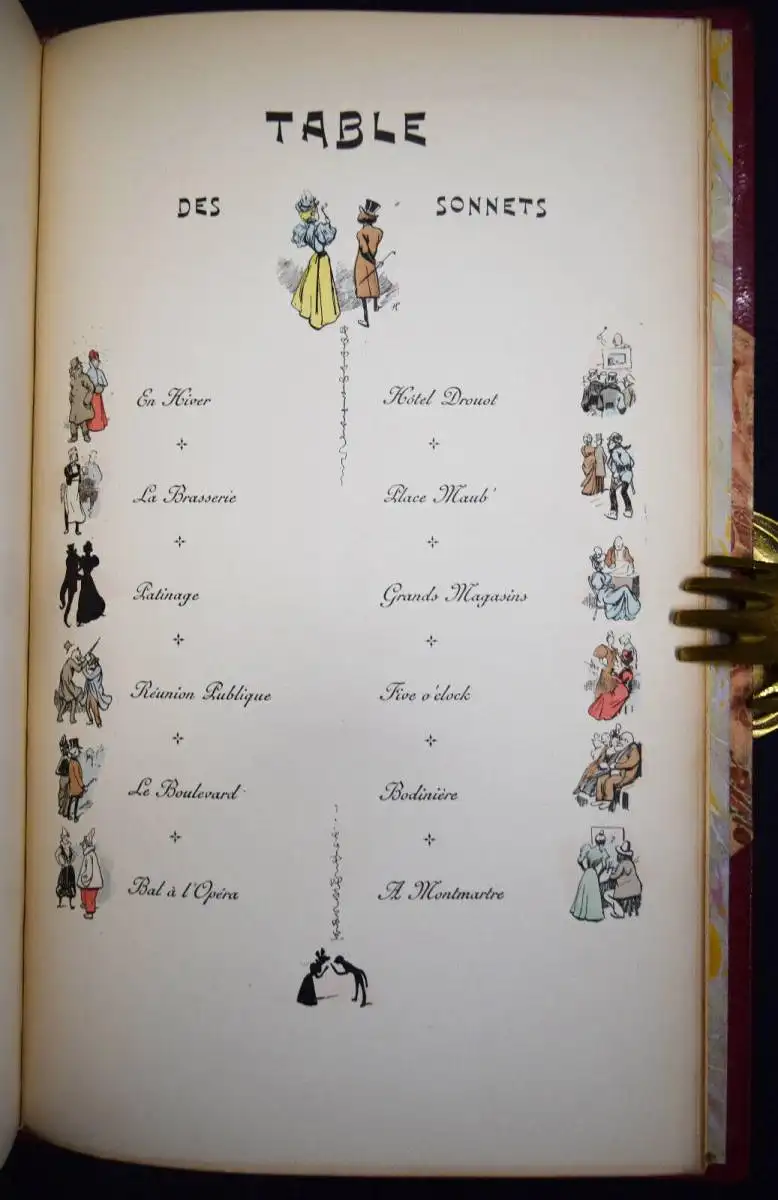 TABLE
DES SONNETS
En Hiver
La Brasserie
Patinage
Réunion Publique
Le Boulevard
Bal à l'Opéra
Hôtel Drouot
Place Maub'
Grands Magasins
Five o'clock
Bodinière
A Montmartre